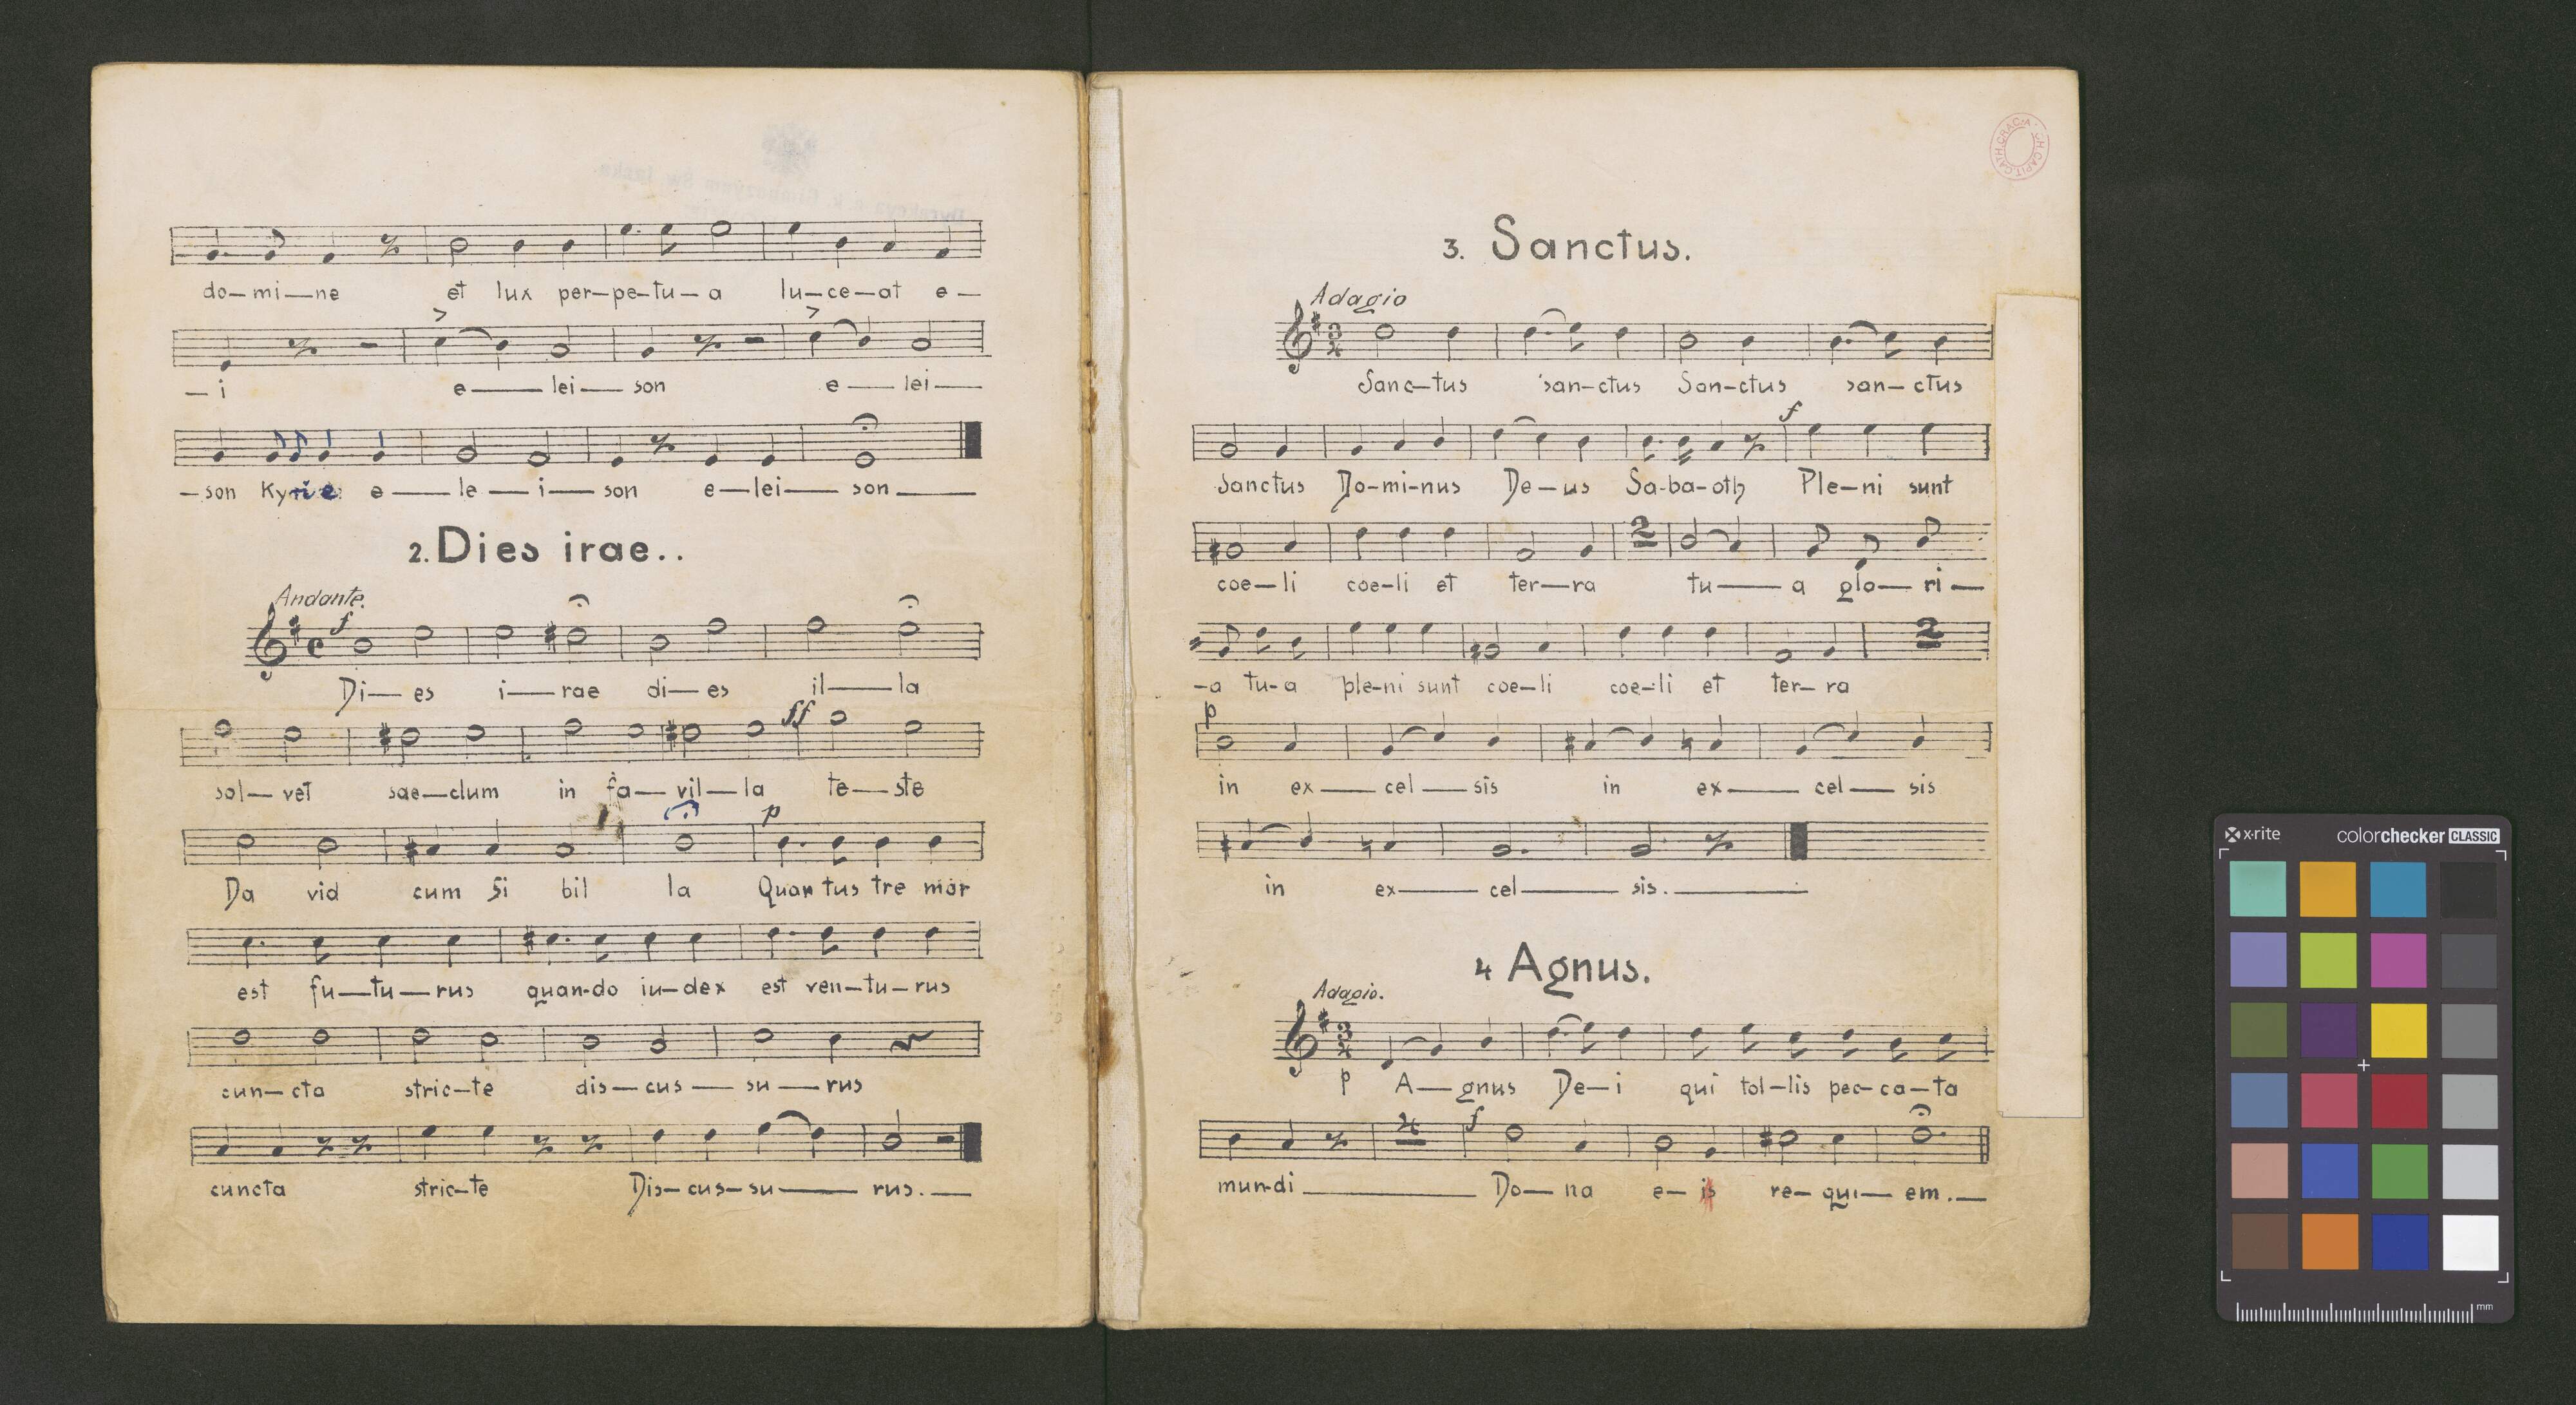 do—mi—ne et lux per—pe—tu—a lu—ce—at e—
—i e—lei—son e—lei—
—son Kyrie e—le—i—son e—lei—son—
2. Dies irae..
Andante.
f
Di—es i—rae di—es il—la
ff
sol—vet sae—clum in fa—vil—la te—ste
p
Da vid cum Si bil la Quan tus tre mor
est fu—tu—rus quan-do iu—dex est ven—tu—rus
cun—cta stric—te dis—cus—su—rus
cuncta stric—te Dis—cus—su—rus.—
3. Sanctus.
Adagio
3/4
Sanc—tus san—ctus San—ctus san—ctus
f
Sanctus Do—mi—nus De—us Sa-ba-oth Ple—ni sunt
2
coe—li coe—li et ter—ra tu—a glo—ri—
2
—a tu—a ple—ni sunt coe—li coe—li et ter—ra
p
in ex—cel—sis in ex—cel—sis
in ex—cel—sis.—
4 Agnus.
Adagio.
3/4
p A—gnus De—i qui tol—lis pec—ca—ta
4 f
mun-di— Do—na e—is re—qui—em.—
x-rite colorchecker CLASSIC
mm